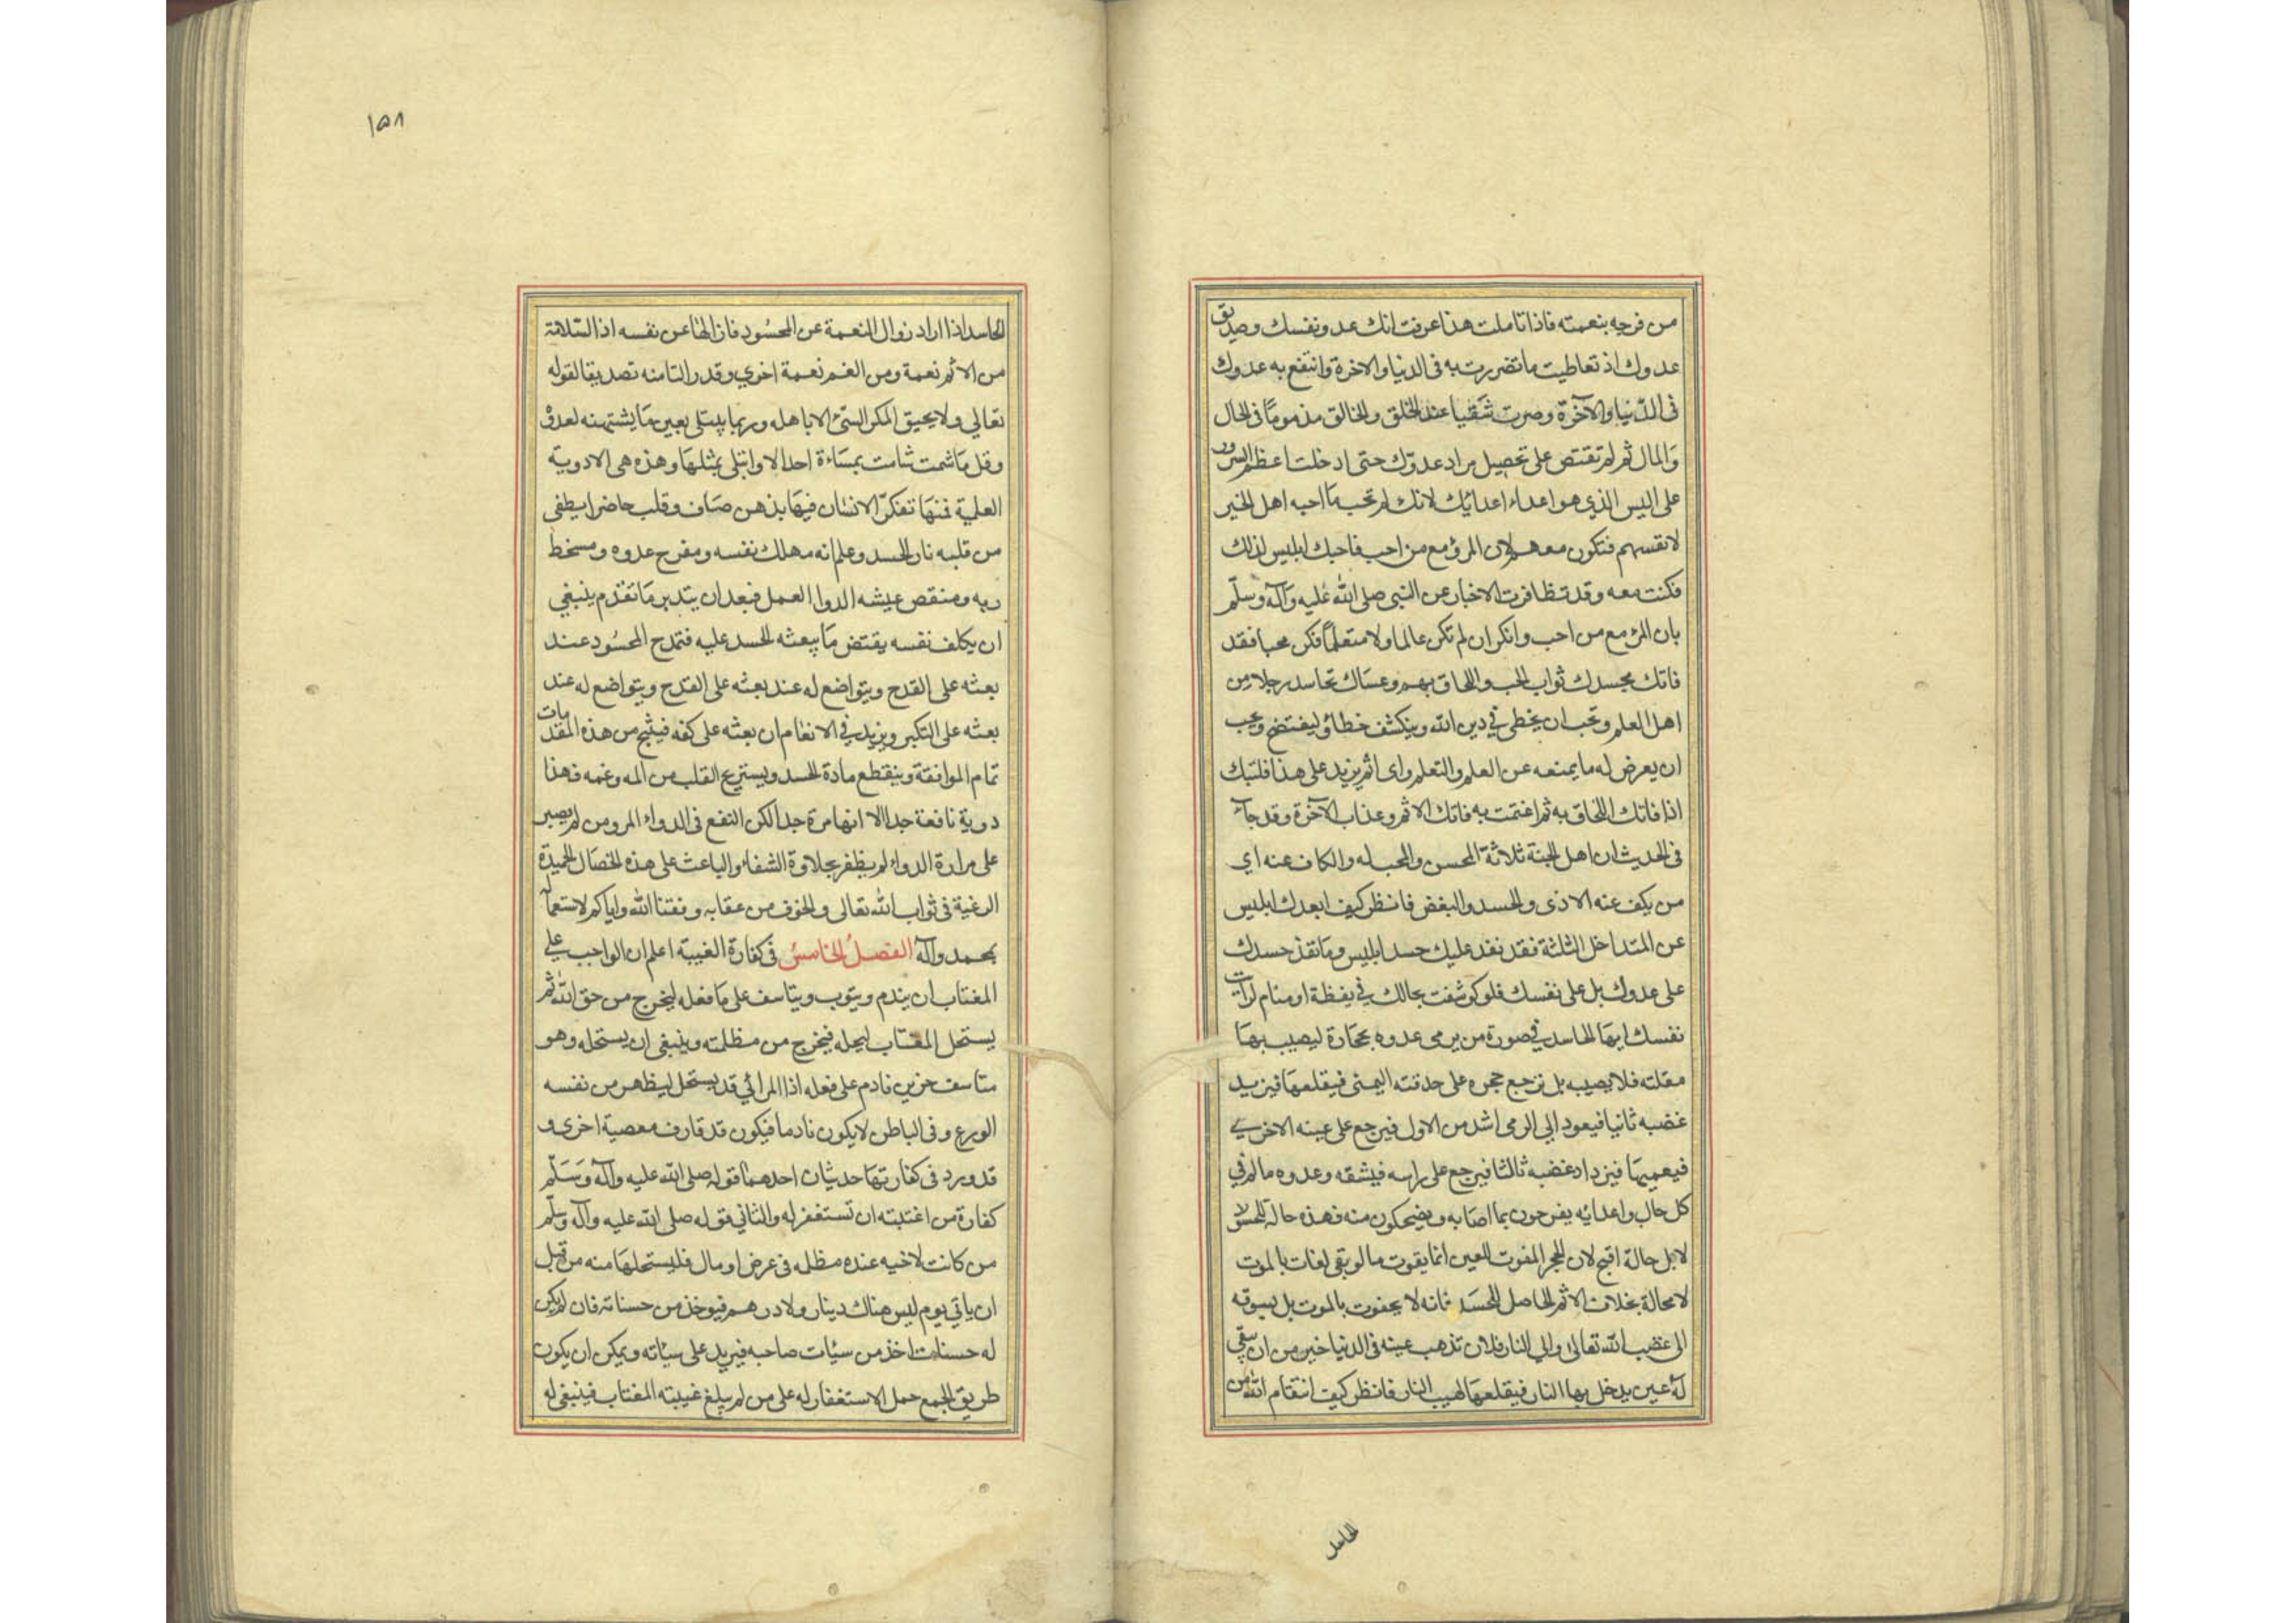 من فرحه بنعمته فاذا تاملت هذا عرفت انك عدو نفسك وصديق
عدوك اذ تعاطيت ما تضررت به فى الدنيا والاخرة وانتفع به عدوك
فى الدّنيا والآخرة وصرت شقيا عند الخلق والخالق مذموما فى الحال
والمال ثم لم تقتص على تحصيل مراد عدوّك حتى ادخلت اعظم السرور
على ابليس الذي هو اعداء اعدايك لانك لم تحب ما احبه اهل الخير
لانفسهم فتكون معهم لان المرؤ مع من احب فاحبك ابليس لذلك
فكنت معه وقد تظافرت الاخبار عن النبى صلى الله عليه وآله وسلّم
بان المرئ مع من احب وانكر ان لم تكن عالما ولا متعلمًا فكن محبا فقد
فاتك بحسدك ثواب الحب واللحاق بهم وعساك تحاسد رجلا من
اهل العلم وتحب ان يخطى في دين الله وينكشف خطاؤ ليفتضح وتحب
ان يعرض له ما يمنعه عن العلم والتعلم واى اثم يزيد على هذا فليتك
اذا فاتك اللحاق به ثم اغتمت به فاتك الاثم وعذاب الآخرة وقد جآء
فى الحديث ان اهل الجنة ثلاثة المحسن والمحب له والكاف عنه اي
من يكف عنه الاذى والحسد والبغض فانظر كيف ابعدك ابليس
عن المتداخل الثلثة فقد نفد عليك حسد ابليس وما نفذ حسدك
على عدوك بل على نفسك فلو كوشفت بحالك في يقظة او منام لرايت
نفسك ايها الحاسد في صورة من يرمى عدوه بحجارة ليصيب بها
مقلته فلا يصيب بل ترجع حجره على حدقته اليمنى فيقلعها فيزيد
غضبه ثانيا فيعود الي الرمى اشد من الاول فيرجع على عينه الاخري
فيعميها فيزداد غضبه ثالثا فيرجع على راسه فيشقه وعدوه سالم في
كل حال واعدائه يفرحون بما اصابه ويضحكون منه فهذه حالة الحسد
لا بل حالة اقبح لان الحجر المفوت للعين انما يفوت ما لو بقى لفات بالموت
لا محالة بخلاف الاثم الحاصل للحسد فانه لا يفوت بالموت بل يسوقه
الى غضب الله تعالى والي النار فلان تذهب عينه فى الدنيا خير من ان تبقى
له عين يدخل بها النار فيقلعها لهيب النار فانظر كيف انتقام الله من
الحاسد
١٥٨
الحاسد اذا اراد زوال النعمة عن المحسود فازالها عن نفسه اذ السّلامة
من الاثم نعمة ومن الغم نعمة اخري وقد زالتا منه تصديقا لقوله
تعالي ولا يحيق المكر السّئ الا باهله وربما يبتلى بعين ما يشتهيه لعدوّ
وقل ما شمت شامت بمساءة احد الا وابتلى بمثلها وهذه هى الادوية
العلمية فمنها تفكّر الانسان فيها بذهن صاف وقلب حاضر ايطفى
من قلبه نار الحسد وعلم انه مهلك نفسه ومفرح عدوه ومسخط
ربه ومنقص عيشه الدوا العمل فبعد ان يتدبر ما تقدم ينبغي
ان يكلف نفسه يقتض ما يبعثه الحسد عليه فتمدح المحسود عند
بعثه على القدح ويتواضع له عند بعثه على القدح ويتواضع له عند
بعثه على التكبر ويزيد في الانعام ان بعثه على كفه فينتج من هذه المقدمات
تمام الموافقة وينقطع مادة الحسد ويستريح القلب من المه وغمه فهذا
دوية نافعة جدا الا انها مرة جدا لكن النفع فى الدواء المر ومن لم يصبر
على مرارة الدواء لم يظفر بحلاوة الشفاء والباعث على هذه الخصال الحميدة
الرغبة فى ثواب الله تعالى والخوف من عقابه وفقنا الله واياكم لاستعماله
بمحمد وآله الفصل الخامس فى كفارة الغيبة اعلم ان الواجب على
المغتاب ان يندم ويتوب ويتاسف على ما فعله ليخرج من حق الله ثم
يستحل المغتاب ليحله فيخرج من مظلمته وينبغى ان يستحله وهو
متاسف حزين نادم على فعله اذ المرائي قد يستحل ليظهر من نفسه
الورع وفى الباطن لا يكون نادما فيكون قد قارف معصية اخرى و
قد ورد فى كفارتها حديثان احدهما قوله صلى الله عليه وآله وسلّم
كفارة من اغتبته ان تستغفر له والثاني قوله صلى الله عليه وآله وسلّم
من كانت لاخيه عنده مظلمه فى عرض او مال فليستحلها منه من قبل
ان ياتي يوم ليس هناك دينار ولا درهم فيوخذ من حسناته فان لم يكن
له حسنات اخذ من سيئات صاحبه فيزيد على سيئاته ويمكن ان يكون
طريق الجمع حمل الاستغفار له على من لم يبلغ غيبته المغتاب فينبغى له